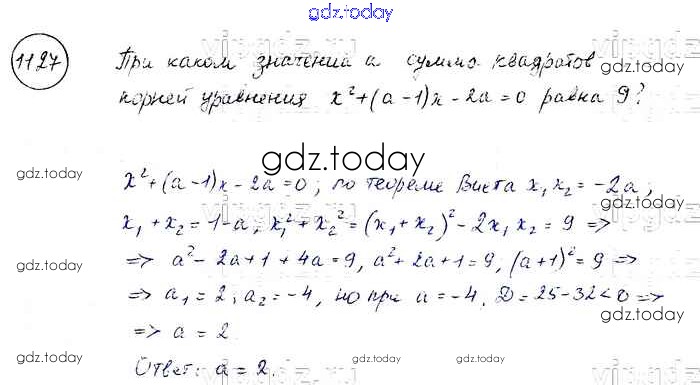 gdz.today
1127
При каком значении a сумма квадратов
gdz.today
корней уравнения x²+(a-1)x-2a=0 равна 9?
gdz.today
gdz.today
x²+(a-1)x-2a=0, по теореме Виета x₁x₂=-2a,
x₁+x₂=1-a, x₁²+x₂²=(x₁+x₂)²-2x₁x₂=9 =>
gdz.today
=> a²-2a+1+4a=9, a²+2a+1=9, (a+1)²=9 =>
gdz.today
=> a₁=2, a₂=-4, но при a=-4, D=25-32<0 =>
=> a=2.
gdz.today
gdz.today
Ответ: a=2.
gdz.today